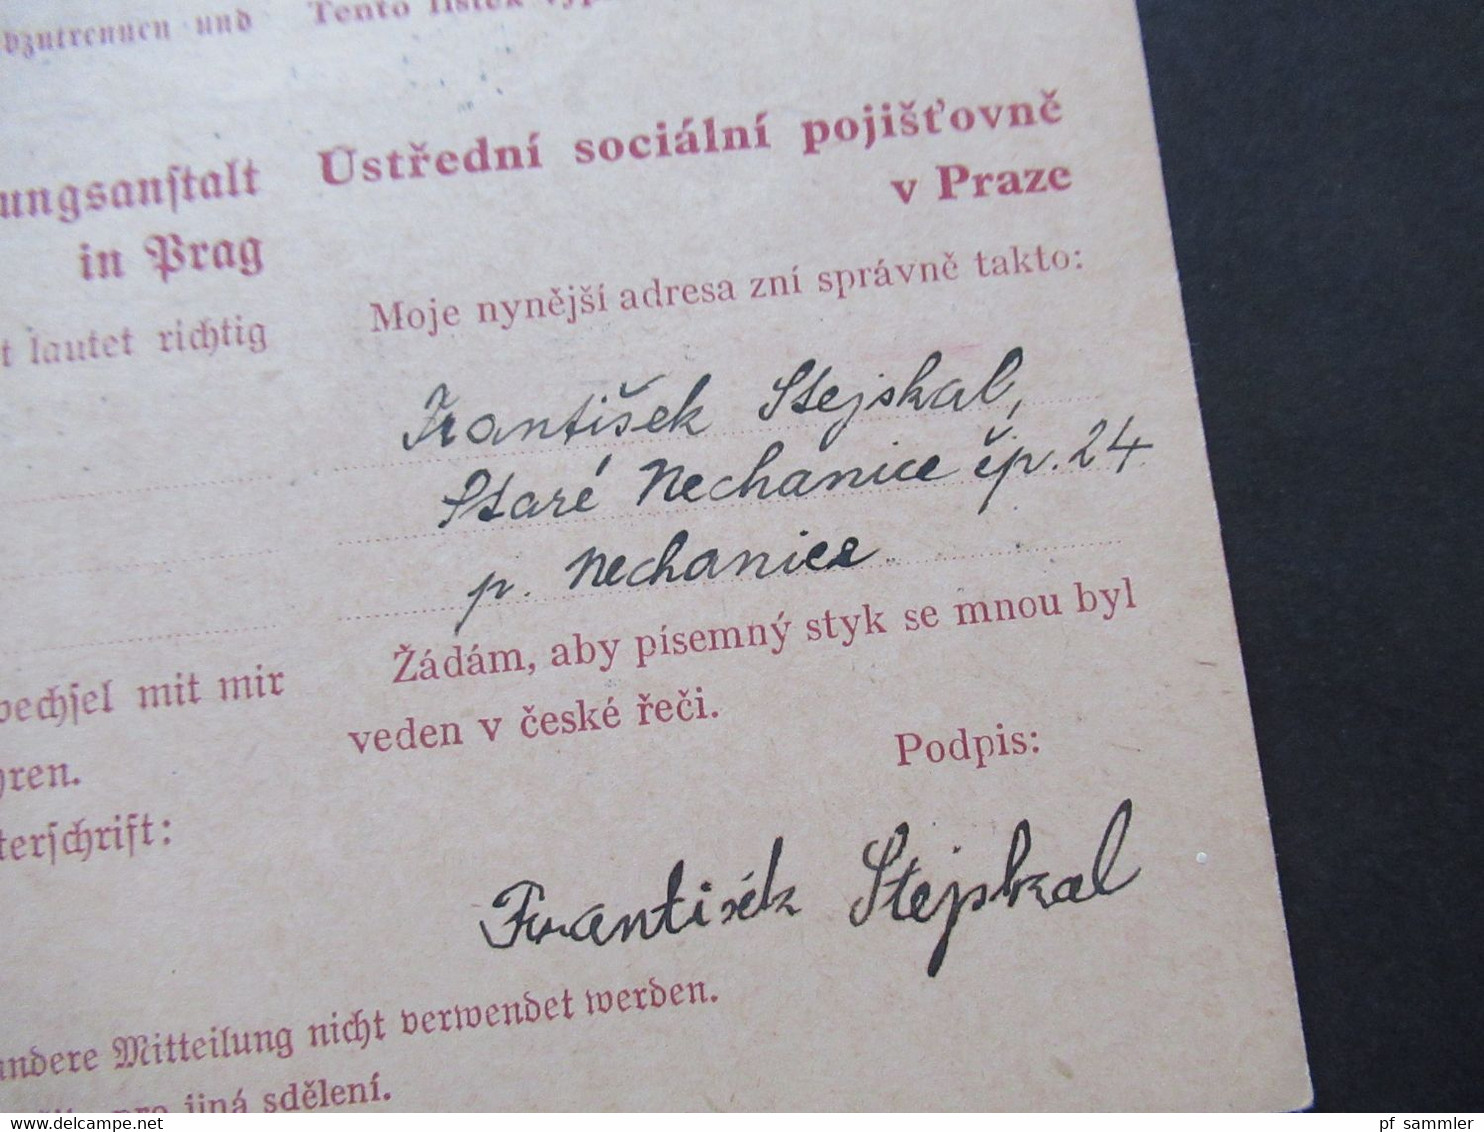 abzutrennen und
Tento lístek
ungsanstalt
in Prag
t lautet richtig
Ústřední sociální pojišťovně
v Praze
Moje nynější adresa zní správně takto:
František Stejskal,
Staré Nechanice čp. 24
p. Nechanice
wechsel mit mir
hren.
terschrift:
Žádám, aby písemný styk se mnou byl
veden v české řeči.
Podpis:
František Stejskal
andere Mitteilung nicht verwendet werden.
pro jiná sdělení.
pf sammler
www.delcampe.net